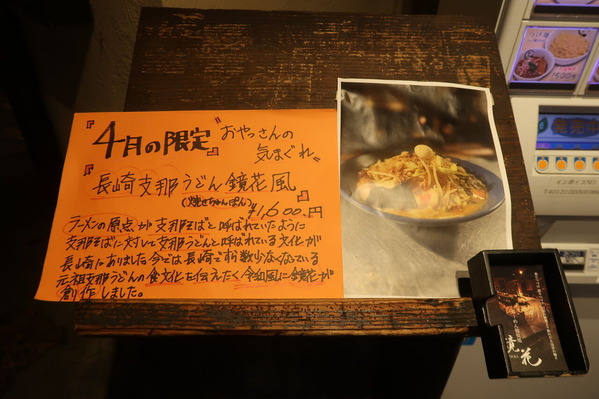 『4月の限定』
"おやっさんの
気まぐれ"
『長崎支那うどん鏡花風』
(焼きちゃんぽん)
¥1,600.円
ラーメンの原点が支那そばと呼ばれていたように
支那そばに対して支那うどんと呼ばれている文化が
長崎にありました今では長崎ですら数少なくなっている
元祖支那うどんの食文化を伝えたく令和風に鏡花が
創作しました。
鏡花
インボイスNO